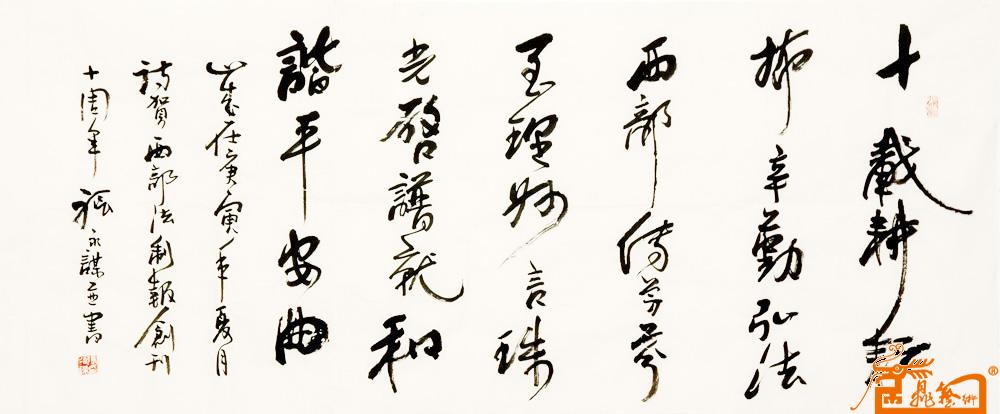 十載耕耘
辛勤弘法
西部傳芳芬
至理妙言珠
光啓譜就和
諧平安曲
歲在庚寅年夏月
詩賀西部法制報創刊
十周年 張永謀並書